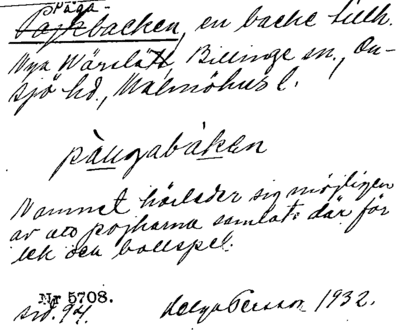 Påga-
Pojkbacken, en backe tillh.
Nya Wärslätt, Billinge sn., On-
sjö hd., Malmöhus l.
påugabåken
Namnet härleder sig möjligen
av att pojkarna samlats där för
lek och bollspel.
Nr 5708.
sid. 94.
Helga Persson 1932.